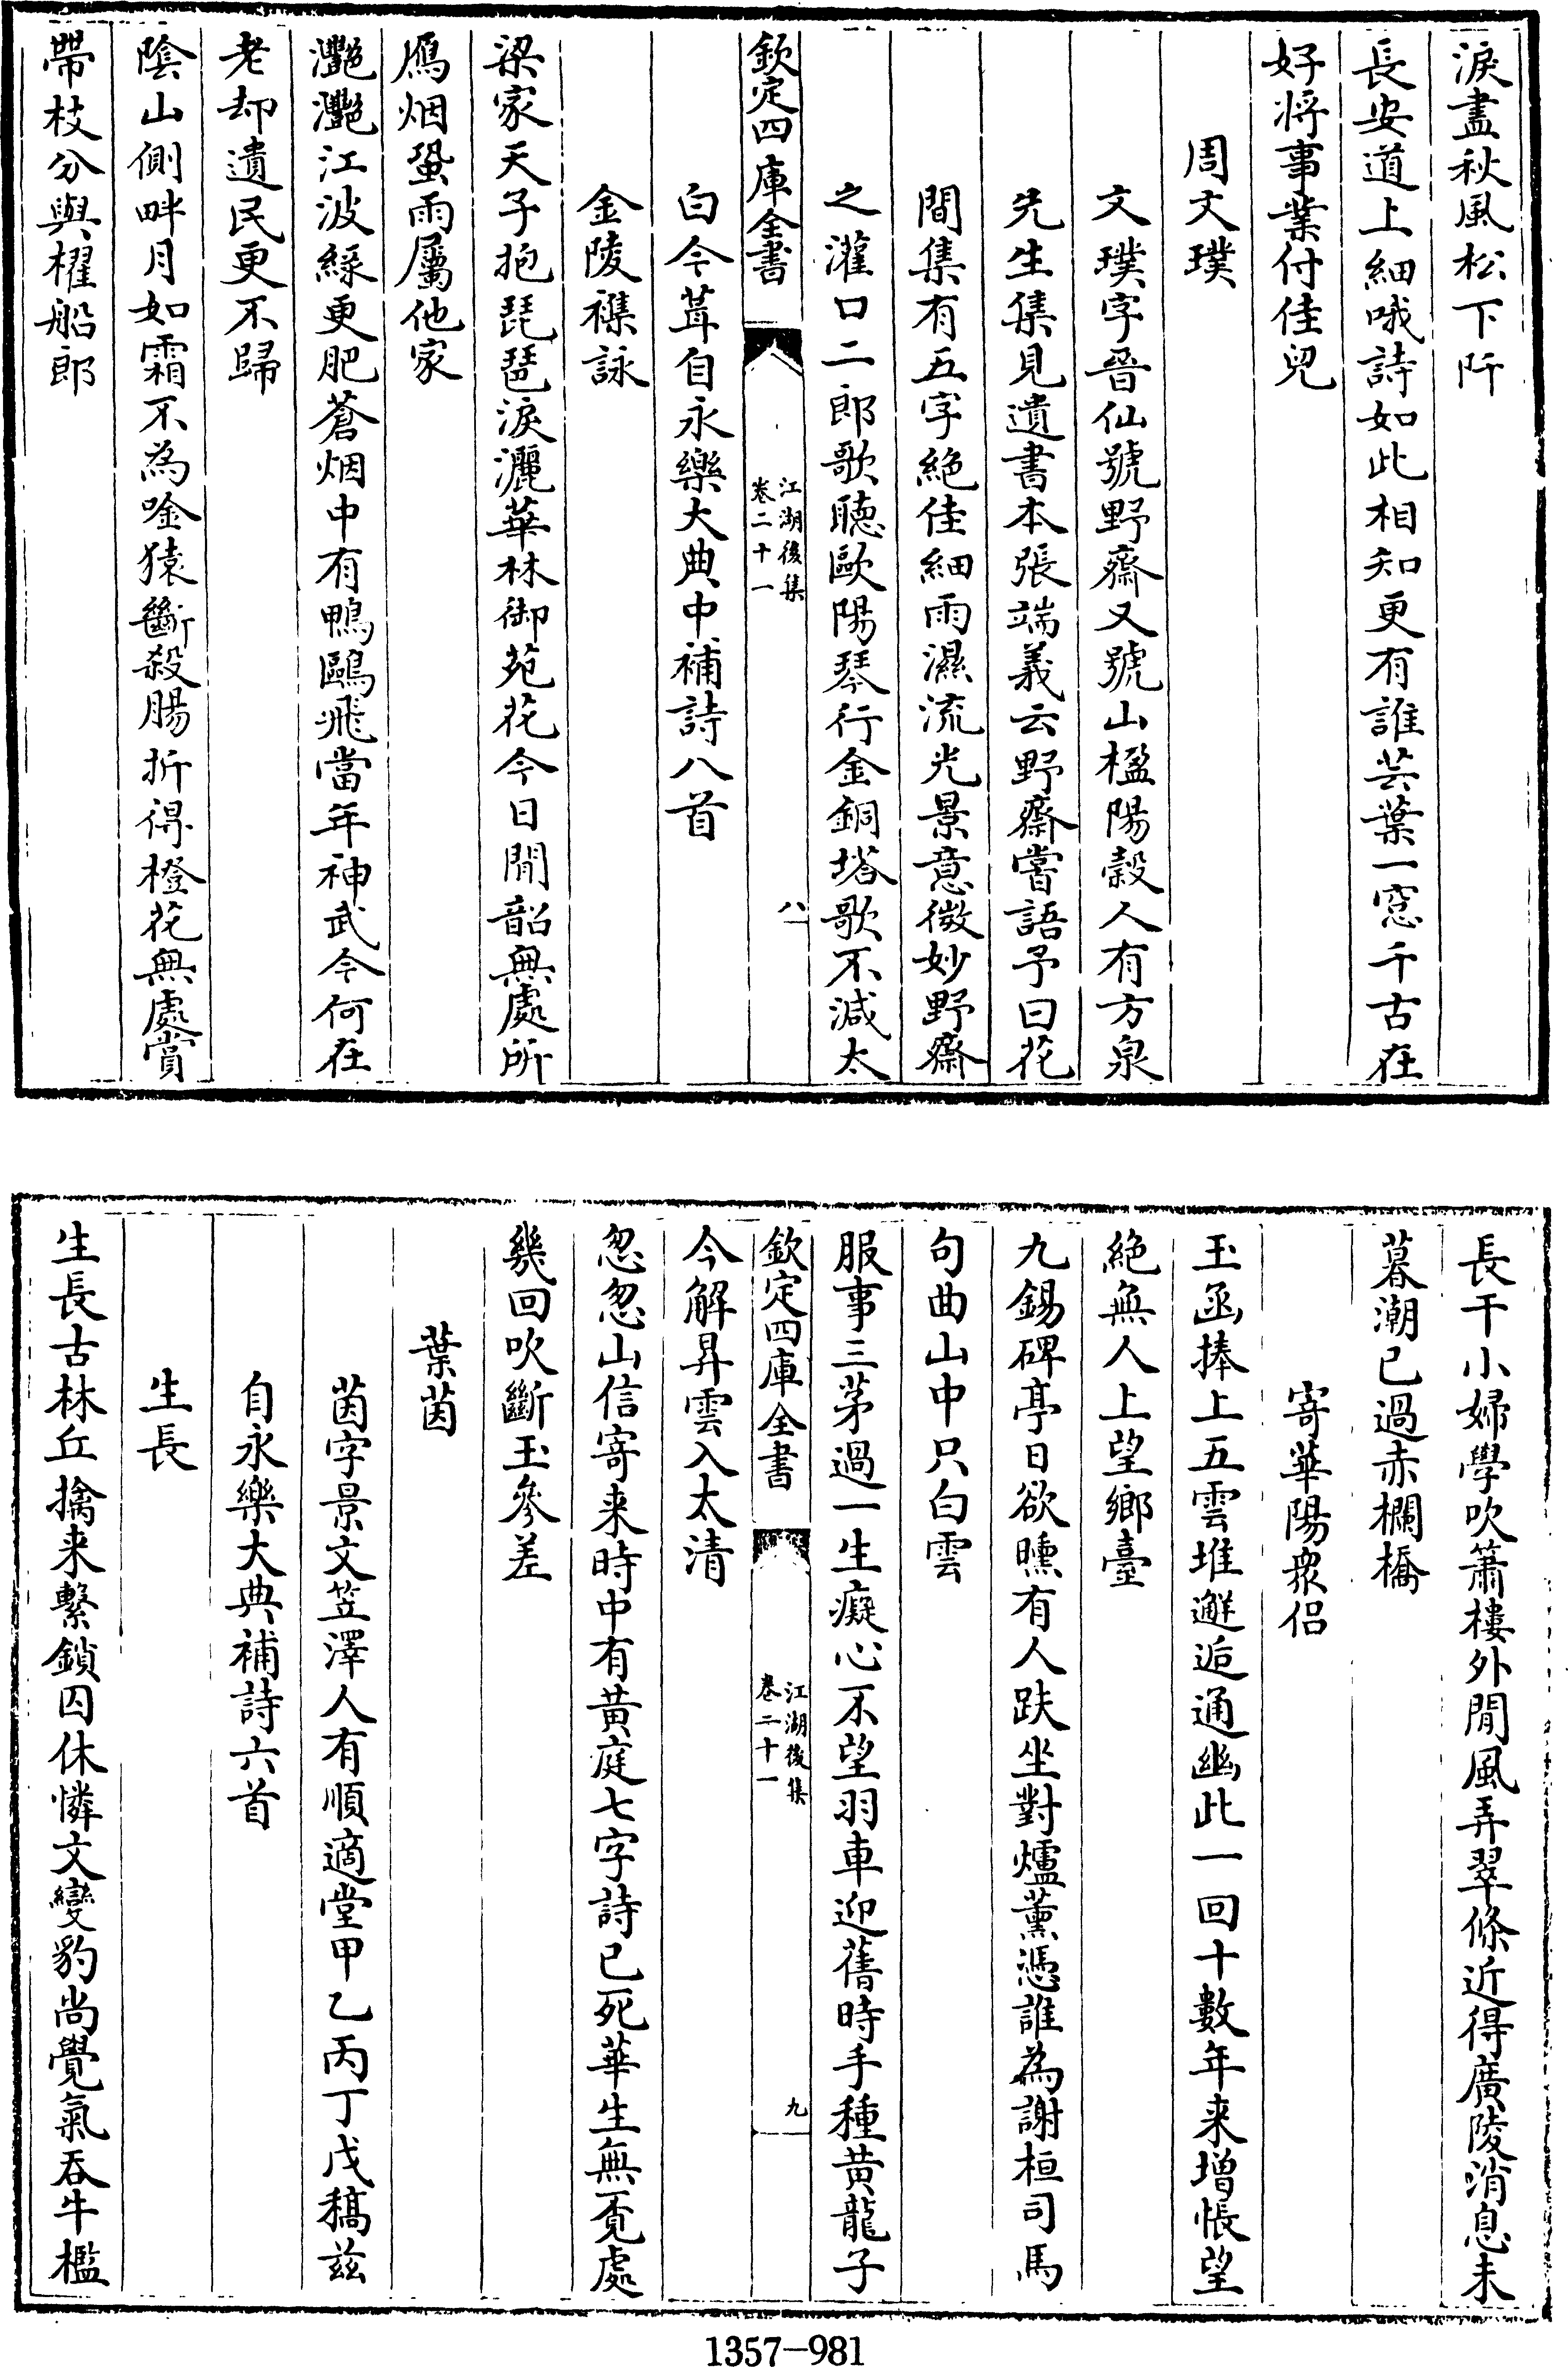 淚盡秋風松下阡
長安道上細哦詩如此相知更有誰芸葉一窓千古在
好将事業付佳兒
周文璞
文璞字晉仙號野齋又號山楹陽穀人有方泉
先生集見遺書本張端義云野齋嘗語予曰花
間集有五字絶佳細雨濕流光景意微妙野齋
之灌口二郎歌聽歐陽琴行金銅塔歌不減太
白今葺自永樂大典中補詩八首
金陵襍詠
梁家天子抱琵琶淚灑華林御苑花今日閒韶無處所
鴈烟蛩雨屬他家
灔灔江波綠更肥蒼烟中有鴨鷗飛當年神武今何在
老却遺民更不歸
陰山側畔月如霜不為唫猿斷殺腸折得橙花無處賞
帶枝分與櫂船郎
欽定四庫全書
江湖後集
卷二十一
八
長干小婦學吹簫樓外閒風弄翠條近得廣陵消息未
暮潮已過赤欄橋
寄華陽衆侶
玉函捧上五雲堆邂逅通幽此一回十數年来增悵望
絶無人上望鄉臺
九錫碑亭日欲曛有人趺坐對爐薰憑誰為謝桓司馬
句曲山中只白雲
服事三茅過一生癡心不望羽車迎舊時手種黄龍子
今解昇雲入太清
忽忽山信寄来時中有黄庭七字詩已死華生無覔處
幾回吹斷玉參差
葉茵
茵字景文笠澤人有順適堂甲乙丙丁戊稿兹
自永樂大典補詩六首
生長
生長古林丘擒来繫鎖囚休憐文變豹尚覺氣吞牛檻
欽定四庫全書
江湖後集
卷二十一
九
1357-981